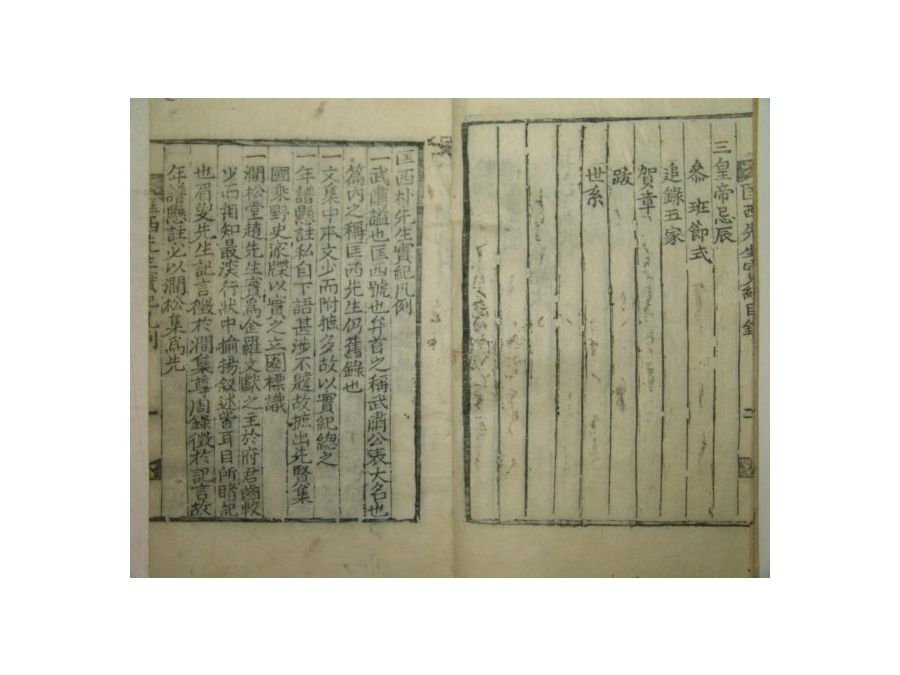 匡西先生實紀目錄
三皇帝忌辰
叅班節式
追錄五家
賀章
跋
世系
匡西朴先生實紀凡例
一武肅謚也匡西號也弁首之稱武肅公表大名也
篇內之稱匡西先生仍舊錄也
一文集中本文少而附摭多故以實紀總之
一年譜懸註私自下語甚涉不韙故摭出先賢集
國乘野史家牒以實之立圈標識
一澗松堂趙先生實爲金羅文獻之主於府君齒較
少而相知最深行狀中揄揚叙述皆耳目所睹記
也眉叟先生記言徵於澗集尊周錄徵於記言故
年譜懸註必以澗松集爲先
匡西先生實紀凡例
一